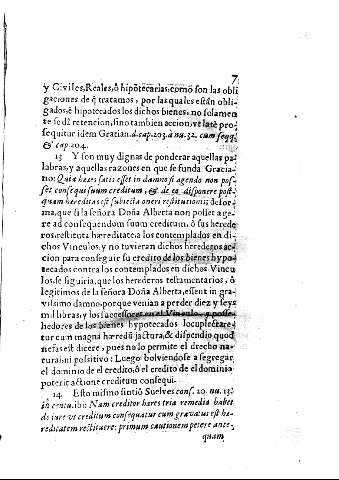 7.
y Civiles, Reales, ò hipotecarias, como son las obli
gaciones de q̃ tratamos, por las quales estàn obli-
gados, è hipotecados los dichos bienes, no solamen
te se dà retencion, sino tambien accion, vt latè pro-
sequitur idem Gratian. d. cap. 203. à nu. 32. cum seqq.
& cap. 204.
13 Y son muy dignas de ponderar aquellas pa-
labras, y aquellas razones en que se funda Gracia-
no: Quia hæres satis esset in damno si agendo non pos-
set consequi suum creditum, & de eo disponere post-
quam hæreditas est subiecta oneri restitutionis; de for-
ma, que si la señora Doña Alberta non posset age-
re ad consequendum suum creditum, ò sus herede
ros, restituta hæreditate à los contemplados en di-
chos Vinculos, y no tuvieran dichos herederos ac-
cion para conseguir su credito de los bienes hypo-
tecados contra los contemplados en dichos Vincu
los, se siguiria, que los herederos testamentarios, ò
legitimos de la señora Doña Alberta, essent in gra-
vissimo damno, porque venian à perder diez y seys
mil libras, y los successores en el Vinculo, y posse-
hedores de los bienes hypotecados locupletare-
tur cum magna hæredū jactura, & dispendio, quod
nefas est dicere, pues no lo permite el drecho na-
tural ni positivo: Luego bolviendose à segregar,
el dominio de el credito, ò el credito de el dominio
poterit actione creditum consequi.
14 Esto mismo sintiò Suelves cons. 20. nu. 13.
in centu. ibi: Nam creditor hæres tria remedia habet
de iure vt creditum consequatur cum gravatus est hæ-
reditatem restituere: primum cautionem petere ante-
quam